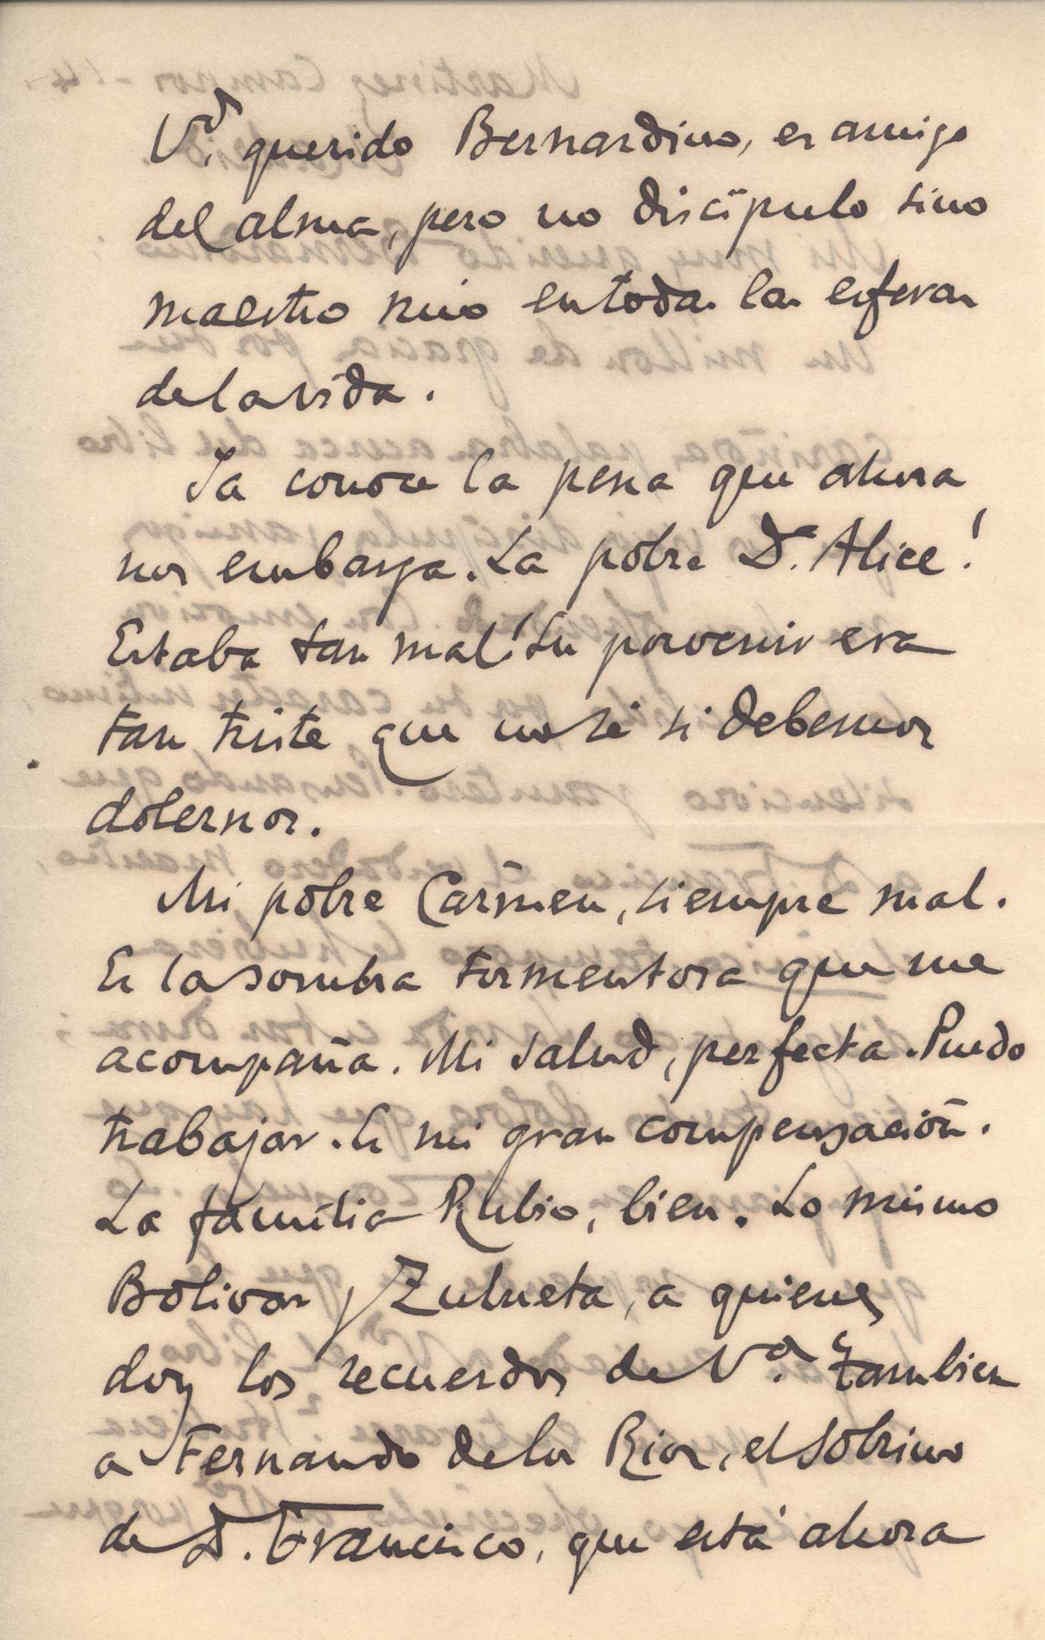 Vd. querido Bernardino, es amigo
del alma, pero no discípulo sino
maestro mío en todas las esferas
de la vida.
Ya conoce la pena que ahora
nos embarga. La pobre Da. Alice!
Estaba tan mal! Su porvenir era
tan triste que no sé si debemos
dolernos.
Mi pobre Carmen, siempre mal.
Es la sombra tormentosa que me
acompaña. Mi salud, perfecta. Puedo
trabajar. Es mi gran compensación.
La familia Rubio, bien. Lo mismo
Bolivar y Zulueta, a quienes
doy los recuerdos de Vd. Tambien
a Fernando de los Rios, el sobrino
de D. Francisco, que está ahora